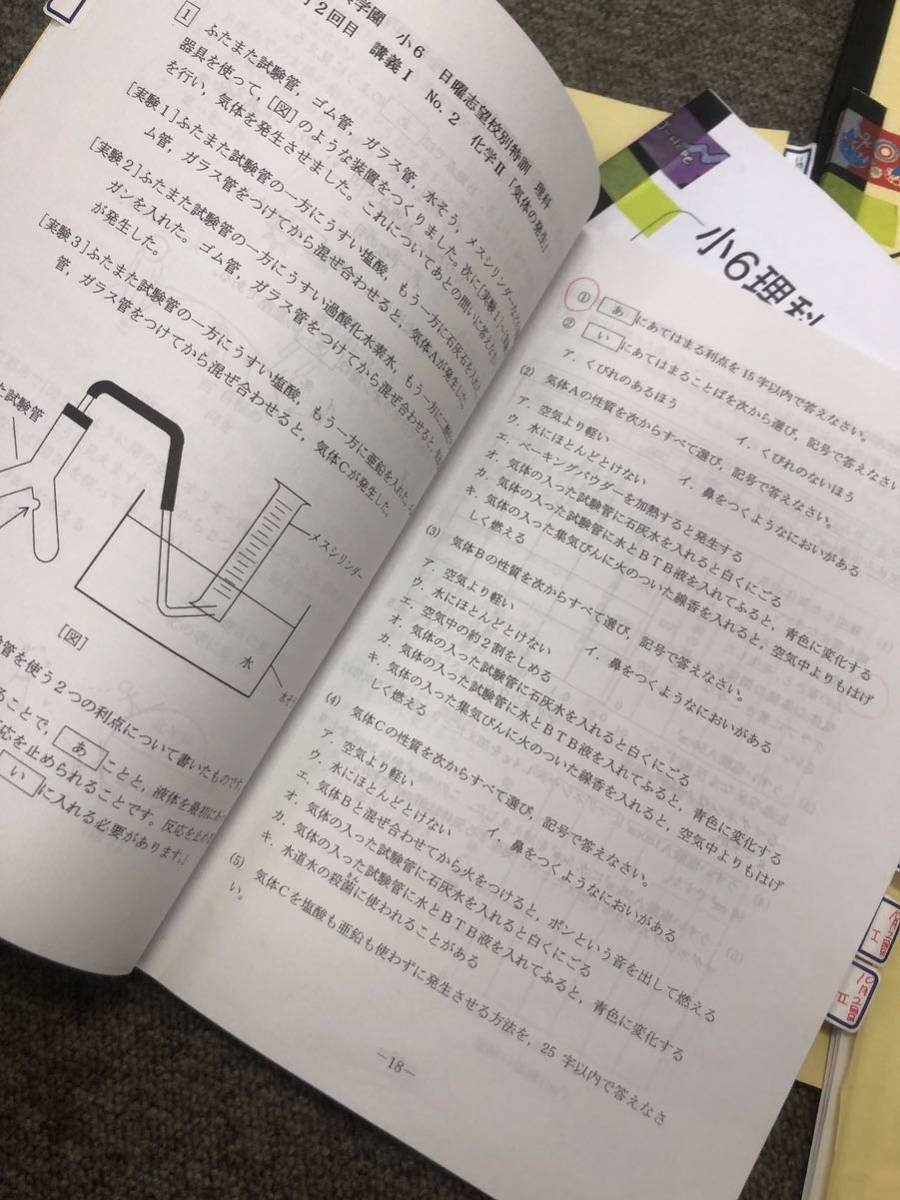 学園 小6 日曜志望校別特訓 理科
2回目 講義Ⅰ No.2 化学Ⅱ「気体の発生」
1 ふたまた試験管，ゴム管，ガラス管，水そう，メスシリンダー
器具を使って，[図]のような装置をつくりました。次に[実験1]～
を行い，気体を発生させました。これについてあとの問いに答え
[実験1]ふたまた試験管の一方にうすい塩酸，もう一方に石灰石を入れ
ム管，ガラス管をつけてから混ぜ合わせると，気体Aが発生した
[実験2]ふたまた試験管の一方にうすい過酸化水素水，もう一方に二酸
ガンを入れた。ゴム管，ガラス管をつけてから混ぜ合わせると，
が発生した。
[実験3]ふたまた試験管の一方にうすい塩酸，もう一方に亜鉛を入れた。
管，ガラス管をつけてから混ぜ合わせると，気体Cが発生した。
た試験管
メスシリンダー
水
水そう
[図]
管を使う2つの利点について書いたものです。
ることで，あことと，液体を最初に
応を止められることです。反応を止め
いに入れる必要があります。」
① あにあてはまる利点を15字以内で答えなさい。
② いにあてはまることばを次から選び，記号で答えなさい
ア．くびれのあるほう イ．くびれのないほう
(2) 気体Aの性質を次からすべて選び，記号で答えなさい。
ア．空気より軽い イ．鼻をつくようなにおいがある
ウ．水にほとんどとけない
エ．ベーキングパウダーを加熱すると発生する
オ．気体の入った試験管に石灰水を入れると白くにごる
カ．気体の入った試験管に水とBTB液を入れてふると，青色に変化する
キ．気体の入った集気びんに火のついた線香を入れると，空気中よりもはげ
しく燃える
(3) 気体Bの性質を次からすべて選び，記号で答えなさい。
ア．空気より軽い イ．鼻をつくようなにおいがある
ウ．水にほとんどとけない
エ．空気中の約2割をしめる
オ．気体の入った試験管に石灰水を入れると白くにごる
カ．気体の入った試験管に水とBTB液を入れてふると，青色に変化する
キ．気体の入った集気びんに火のついた線香を入れると，空気中よりもはげ
しく燃える
(4) 気体Cの性質を次からすべて選び，記号で答えなさい。
ア．空気より軽い イ．鼻をつくようなにおいがある
ウ．水にほとんどとけない
エ．気体Bと混ぜ合わせてから火をつけると，ポンという音を出して燃える
オ．気体の入った試験管に石灰水を入れると白くにごる
カ．気体の入った試験管に水とBTB液を入れてふると，青色に変化する
キ．水道水の殺菌に使われることがある
(5) 気体Cを塩酸も亜鉛も使わずに発生させる方法を，25字以内で答えなさ
い。
-18-
小6理科
Ⅰ
10月2回
Ⅱ